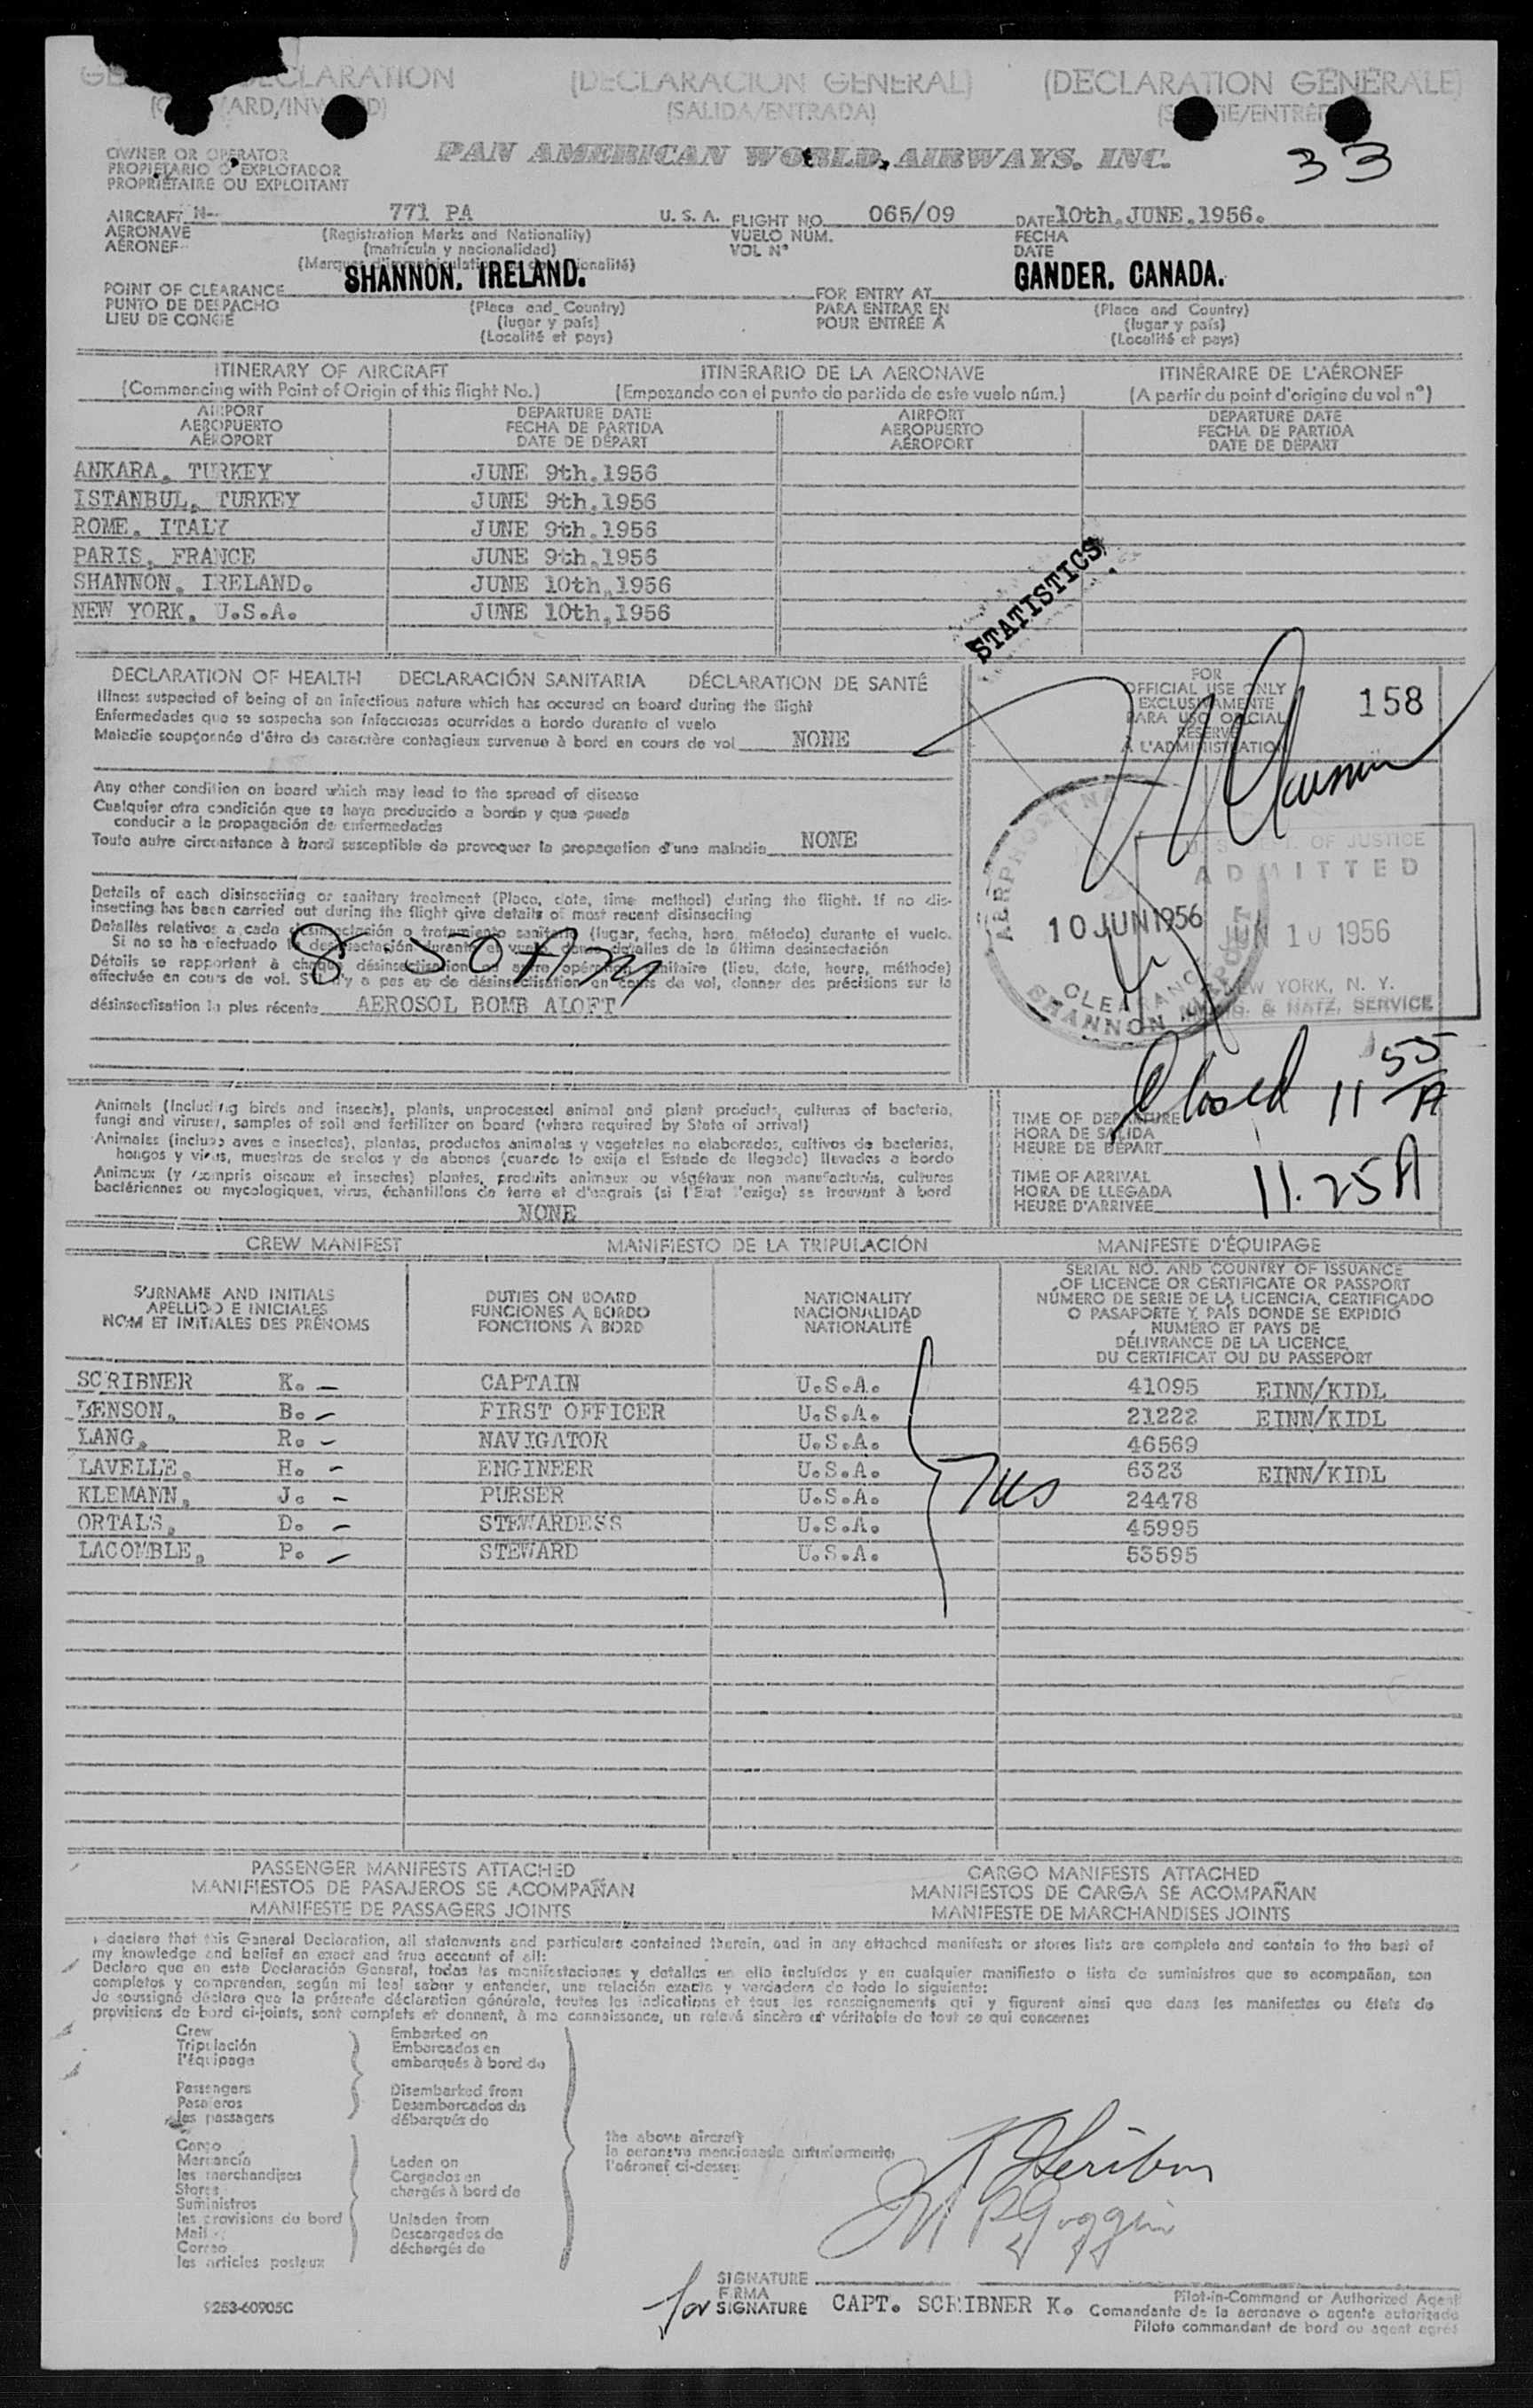 DECLARATION (DECLARACION GENERAL) (DECLARATION GÉNÉRALE)
(SALIDA/ENTRADA)
OWNER OR OPERATOR
PROPIETARIO O EXPLOTADOR
PROPRIÉTAIRE OU EXPLOITANT
PAN AMERICAN WORLD AIRWAYS, INC.
33
AIRCRAFT N- 771 PA U.S.A. FLIGHT NO. 065/09 DATE 10th,JUNE,1956.
AERONAVE (Registration Marks and Nationality) VUELO NÚM. FECHA
AÉRONEF (matrícula y nacionalidad) VOL Nº DATE
SHANNON, IRELAND. GANDER, CANADA.
POINT OF CLEARANCE (Place and Country) FOR ENTRY AT (Place and Country)
PUNTO DE DESPACHO (lugar y país) PARA ENTRAR EN (lugar y país)
LIEU DE CONGÉ (Localité et pays) POUR ENTRÉE À (Localité et pays)
ITINERARY OF AIRCRAFT ITINERARIO DE LA AERONAVE ITINÉRAIRE DE L'AÉRONEF
(Commencing with Point of Origin of this flight No.) (Empezando con el punto de partida de este vuelo núm.) (A partir du point d'origine du vol nº)
AIRPORT DEPARTURE DATE AIRPORT DEPARTURE DATE
AEROPUERTO FECHA DE PARTIDA AEROPUERTO FECHA DE PARTIDA
AÉROPORT DATE DE DÉPART AÉROPORT DATE DE DÉPART
ANKARA, TURKEY JUNE 9th,1956
ISTANBUL, TURKEY JUNE 9th,1956
ROME, ITALY JUNE 9th,1956
PARIS, FRANCE JUNE 9th,1956
SHANNON, IRELAND. JUNE 10th,1956
NEW YORK, U.S.A. JUNE 10th,1956
STATISTICS
DECLARATION OF HEALTH DECLARACIÓN SANITARIA DÉCLARATION DE SANTÉ
Illness suspected of being of an infectious nature which has occured on board during the flight
Enfermedades que se sospecha son infecciosas ocurridas a bordo durante el vuelo
Maladie soupçonnée d'être de caractère contagieux survenue à bord en cours de vol NONE
FOR
OFFICIAL USE ONLY
EXCLUSIVAMENTE
PARA USO OFICIAL
RÉSERVÉ
À L'ADMINISTRATION
158
Any other condition on board which may lead to the spread of disease
Cualquier otra condición que se haya producido a bordo y que pueda
conducir a la propagación de enfermedades
Toute autre circonstance à bord susceptible de provoquer la propagation d'une maladie NONE
U. S. DEPT. OF JUSTICE
ADMITTED
JUN 10 1956
NEW YORK, N. Y.
& NATZ. SERVICE
10 JUN 1956
CLEARANCE
SHANNON AIRPORT
Details of each disinsecting or sanitary treatment (Place, date, time method) during the flight. If no dis-
insecting has been carried out during the flight give details of most recent disinsecting
Detalles relativos a cada desinsectación o tratamiento sanitario (lugar, fecha, hora, método) durante el vuelo.
Si no se ha efectuado la desinsectación durante el vuelo, dense detalles de la última desinsectación
Détails se rapportant à chaque désinsectisation ou autre opération sanitaire (lieu, date, heure, méthode)
effectuée en cours de vol. S'il n'y a pas eu de désinsectisation en cours de vol, donner des précisions sur la
désinsectisation la plus récente AEROSOL BOMB ALOFT
8 50 AM
Closed 11 55 A
Animals (Including birds and insects), plants, unprocessed animal and plant products, cultures of bacteria,
fungi and viruses, samples of soil and fertilizer on board (where required by State of arrival)
Animales (incluso aves e insectos), plantas, productos animales y vegetales no elaborados, cultivos de bacterias,
hongos y virus, muestras de suelos y de abonos (cuando lo exija el Estado de llegada) llevados a bordo
Animaux (y compris oiseaux et insectes) plantes, produits animaux ou végétaux non manufacturés, cultures
bactériennes ou mycologiques, virus, échantillons de terre et d'engrais (si l'Etat l'exige) se trouvant à bord
NONE
TIME OF DEPARTURE
HORA DE SALIDA
HEURE DE DÉPART
TIME OF ARRIVAL
HORA DE LLEGADA
HEURE D'ARRIVÉE 11.25 A
CREW MANIFEST MANIFIESTO DE LA TRIPULACIÓN MANIFESTE D'ÉQUIPAGE
SURNAME AND INITIALS
APELLIDO E INICIALES
NOM ET INITIALES DES PRÉNOMS
DUTIES ON BOARD
FUNCIONES A BORDO
FONCTIONS À BORD
NATIONALITY
NACIONALIDAD
NATIONALITÉ
SERIAL NO. AND COUNTRY OF ISSUANCE
OF LICENCE OR CERTIFICATE OR PASSPORT
NÚMERO DE SERIE DE LA LICENCIA, CERTIFICADO
O PASAPORTE Y PAÍS DONDE SE EXPIDIÓ
NUMÉRO ET PAYS DE
DÉLIVRANCE DE LA LICENCE
DU CERTIFICAT OU DU PASSEPORT
SCRIBNER K. - CAPTAIN U.S.A. 41095 EINN/KIDL
BENSON, B. - FIRST OFFICER U.S.A. 21222 EINN/KIDL
LANG, R. - NAVIGATOR U.S.A. 46569
LAVELLE, H. - ENGINEER U.S.A. 6323 EINN/KIDL
KLEMANN, J. - PURSER U.S.A. 24478
ORTALS, D. - STEWARDESS U.S.A. 45995
LACOMBLE, P. - STEWARD U.S.A. 53595
PASSENGER MANIFESTS ATTACHED CARGO MANIFESTS ATTACHED
MANIFIESTOS DE PASAJEROS SE ACOMPAÑAN MANIFIESTOS DE CARGA SE ACOMPAÑAN
MANIFESTE DE PASSAGERS JOINTS MANIFESTE DE MARCHANDISES JOINTS
I declare that this General Declaration, all statements and particulars contained therein, and in any attached manifests or stores lists are complete and contain to the best of
my knowledge and belief an exact and true account of all:
Declaro que en esta Declaración General, todas las manifestaciones y detalles en ella incluídos y en cualquier manifiesto o lista de suministros que se acompañan, son
completos y comprenden, según mi leal saber y entender, una relación exacta y verdadera de todo lo siguiente:
Je soussigné déclare que la présente déclaration générale, toutes les indications et tous les renseignements qui y figurent ainsi que dans les manifestes ou états de
provisions de bord ci-joints, sont complets et donnent, à ma connaissance, un relevé sincère et véritable de tout ce qui concerne:
Crew Embarked on
Tripulación Embarcados en
l'équipage embarqués à bord de
Passengers Disembarked from
Pasajeros Desembarcados de
les passagers débarqués de
Cargo
Mercancía
les marchandises
Stores
Suministros
les provisions de bord
Mail
Correo
les articles postaux
Laden on
Cargados en
chargés à bord de
Unladen from
Descargados de
déchargés de
the above aircraft
la aeronave mencionada anteriormente
l'aéronef ci-dessus
K Scribner
SIGNATURE
FIRMA
for SIGNATURE CAPT. SCRIBNER K.
Pilot-in-Command or Authorized Agent
Comandante de la aeronave o agente autorizado
Pilote commandant de bord ou agent agréé
9253-60905C